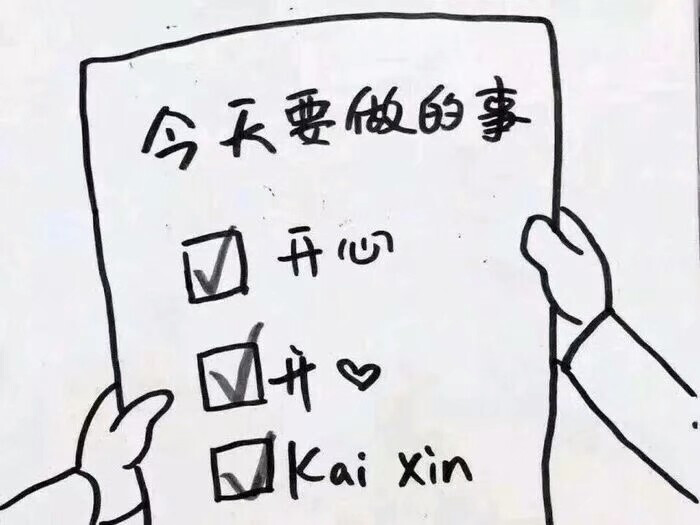 今天要做的事
开心
开♡
Kai xin